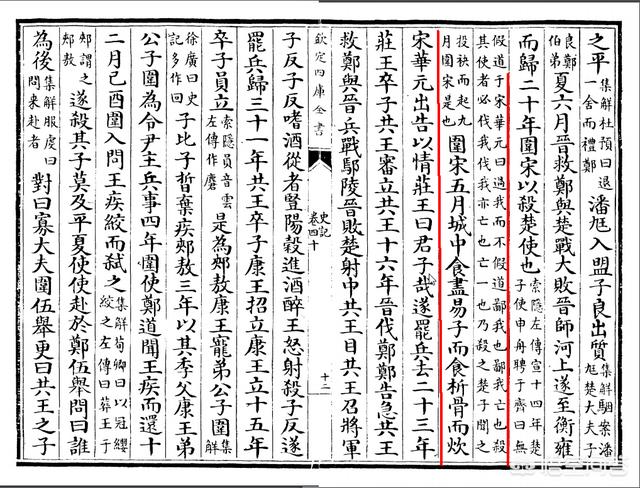 之平集解杜預曰退一舍而禮鄭潘尪入盟子良出質集解駰案潘尪楚大夫子
良鄭伯弟夏六月晉救鄭與楚戰大敗晉師河上遂至衡雍
而歸二十年圍宋以殺楚使也索隱左傳宣十四年楚子使申舟聘于齊曰無
假道于宋華元曰過我而不假道鄙我也鄙我亡也殺
其使者必伐我伐我亦亡也亡一也乃殺之楚子聞之
投袂而起九月圍宋是也圍宋五月城中食盡易子而食析骨而炊
宋華元出告以情莊王曰君子哉遂罷兵去二十三年
莊王卒子共王審立共王十六年晉伐鄭鄭告急共王
救鄭與晉兵戰鄢陵晉敗楚射中共王目共王召將軍
欽定四庫全書
史記
卷四十
十二
子反子反嗜酒從者豎陽穀進酒醉王怒射殺子反遂
罷兵歸三十一年共王卒子康王招立康王立十五年
卒子員立索隱員音雲左傳作麇是為郟敖康王寵弟公子圍集解
徐廣曰史記多作回子比子晳棄疾郟敖三年以其季父康王弟
公子圍為令尹主兵事四年圍使鄭道聞王疾而還十
二月己酉圍入問王疾絞而弑之集解荀卿曰以冠纓絞之左傳曰葬王于
郟謂之郟敖遂殺其子莫及平夏使使赴於鄭伍舉問曰誰
為後集解服虔曰問来赴者對曰寡大夫圍伍舉更曰共王之子